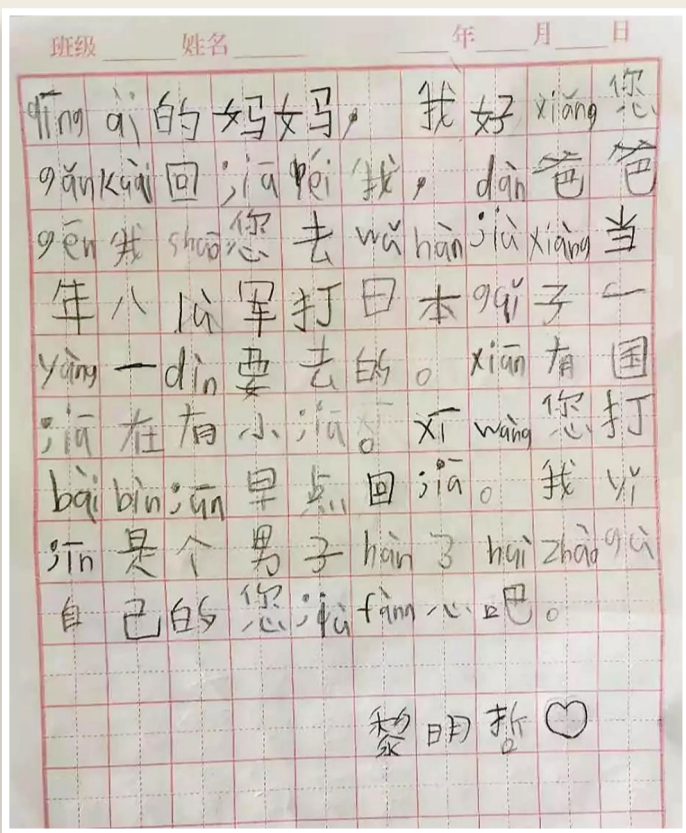 班级 姓名 年 月 日
qīng ài 的妈妈，我好 xiǎng 您
gǎn kuài 回 jiā péi 我，dàn 爸爸
gēn 我 shuō 您去 wǔ hàn jiù xiàng 当
年八 lù 军打日本 guǐ 子一
yàng 一 dìn 要去的。xiān 有国
jiā 在有小 jiā。xī wàng 您打
bài bìn jūn 早点回 jiā。我 yǐ
jīn 是个男子 hàn 了 huì zhào gù
自己的您 jiù fàng 心吧。
黎明哲♡